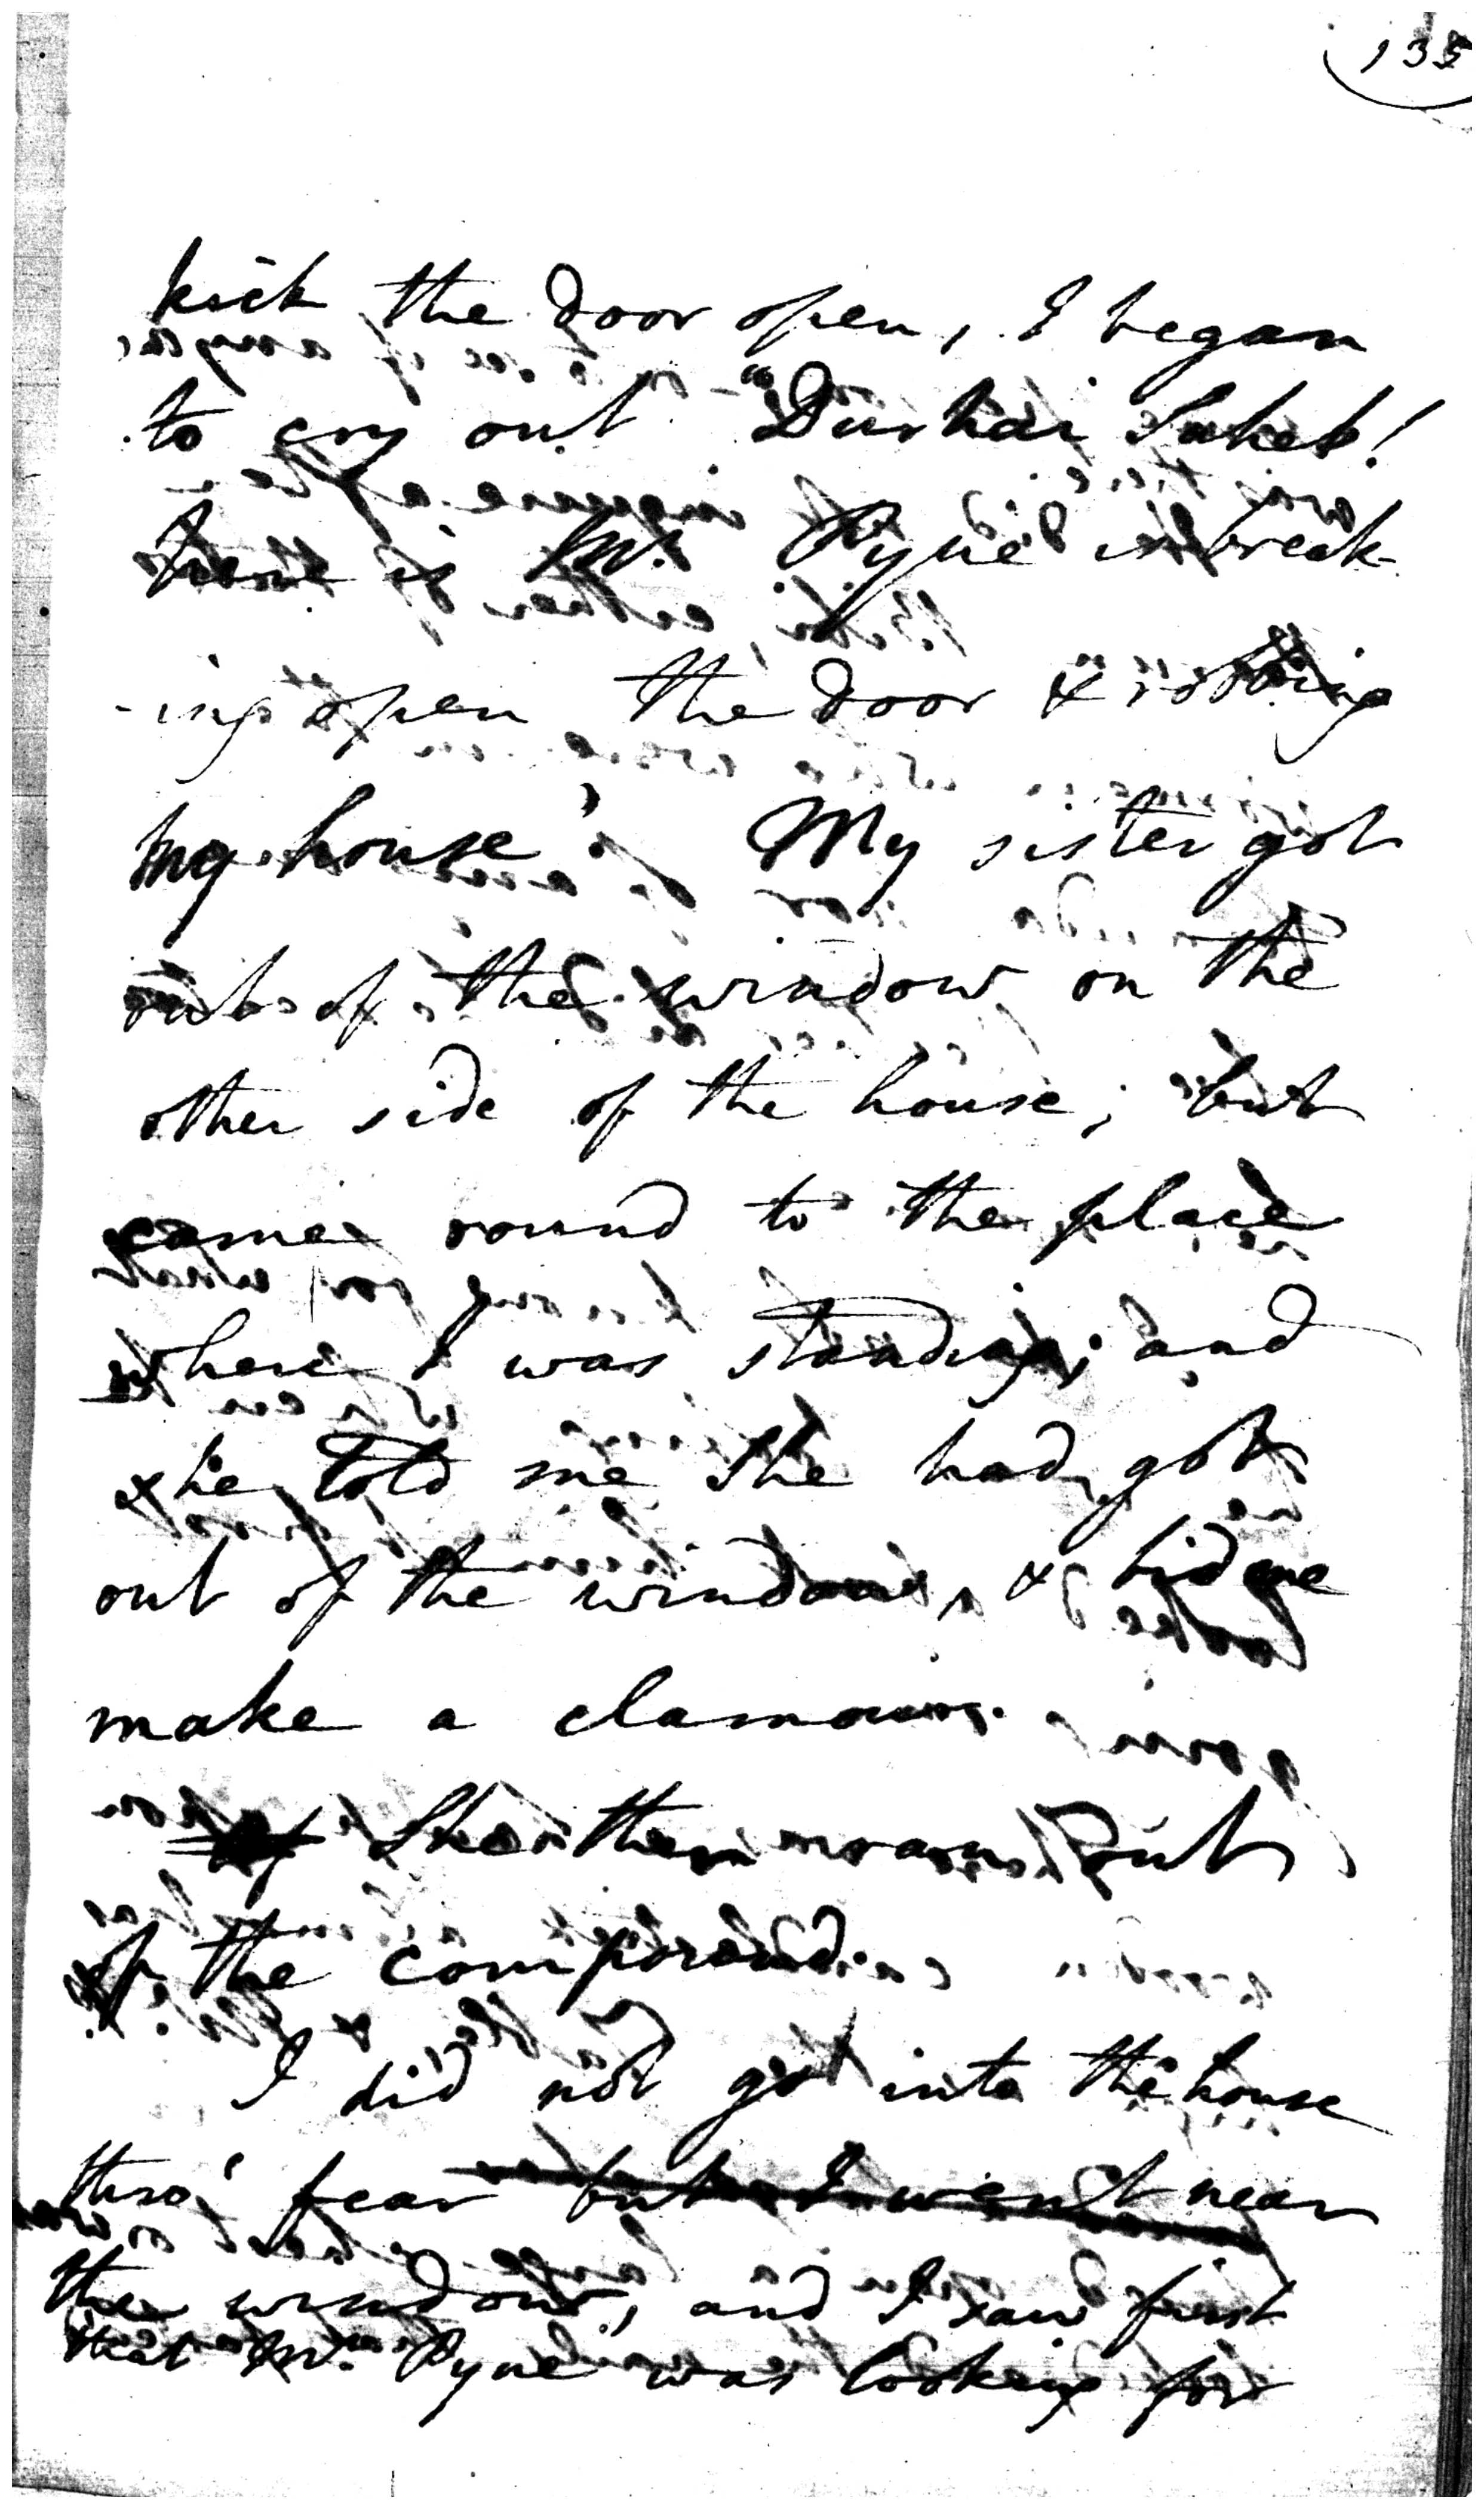 135
kick the door open, I began
to cry out "Durhai Saheb!
here is Mr. Pyne is break-
-ing open the door & robbing
my house". My sister got
out of the window on the
other side of the house; but
came round to the place
where I was standing; and
she told me she had got
out of the window, & bid me
make a clamour.
She then moran out
of the compound.
I did not go into the house
thro' fear but I went near
the window, and I saw first
that Mr. Pyne was looking for